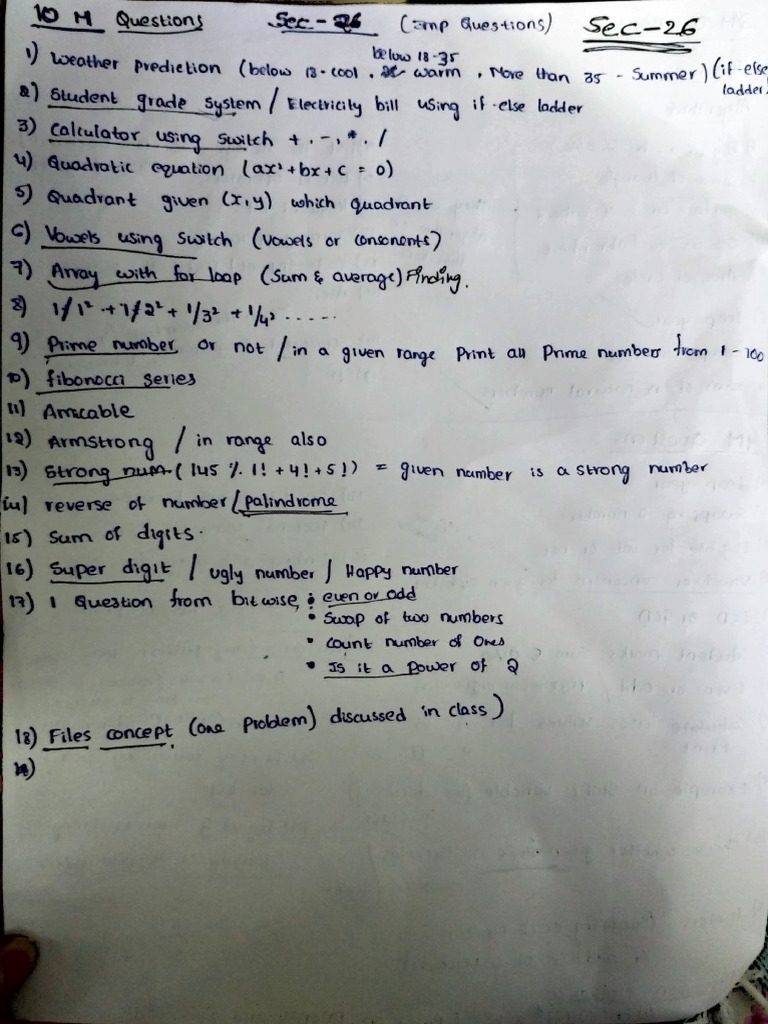 10 M Questions Sec-26 (Imp Questions) Sec-26
1) Weather prediction (below 18-cool, below 18-35 warm, More than 35 - Summer) (if-else ladder)
2) Student grade system / Electricity bill using if-else ladder
3) Calculator using switch +, -, *, /
4) Quadratic equation (ax² + bx + c = 0)
5) Quadrant given (x,y) which quadrant
6) Vowels using switch (vowels or consonents)
7) Array with for loop (sum & average) Finding.
8) 1/1² + 1/2² + 1/3² + 1/4² .....
9) Prime number or not / in a given range Print all Prime numbers from 1 - 100
10) fibonocci series
11) Amicable
12) Armstrong / in range also
13) Strong num (145 % 1! + 4! + 5!) = given number is a strong number
14) reverse of number / palindrome
15) Sum of digits.
16) Super digit / ugly number / Happy number
17) 1 Question from bitwise • even or odd
• Swap of two numbers
• Count number of Ones
• Is it a power of 2
18) Files concept (one problem) discussed in class)